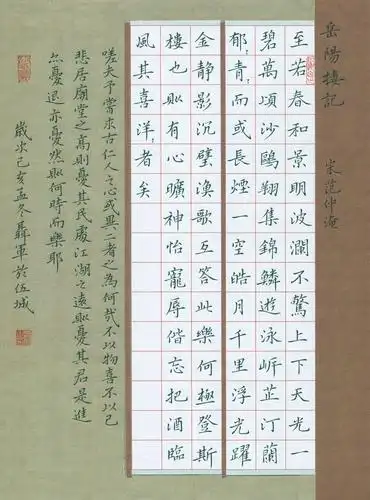 岳陽樓記
宋范仲淹
至若春和景明波瀾不驚上下天光一
碧萬頃沙鷗翔集錦鱗遊泳岸芷汀蘭
郁〻青〻而或長煙一空皓月千里浮光躍
金静影沉璧漁歌互答此樂何極登斯
樓也則有心曠神怡寵辱偕忘把酒臨
風其喜洋〻者矣
嗟夫予嘗求古仁人之心或異二者之為何哉不以物喜不以己
悲居廟堂之高則憂其民處江湖之遠則憂其君是進
亦憂退亦憂然則何時而樂耶
歲次己亥孟冬聶軍於伍城